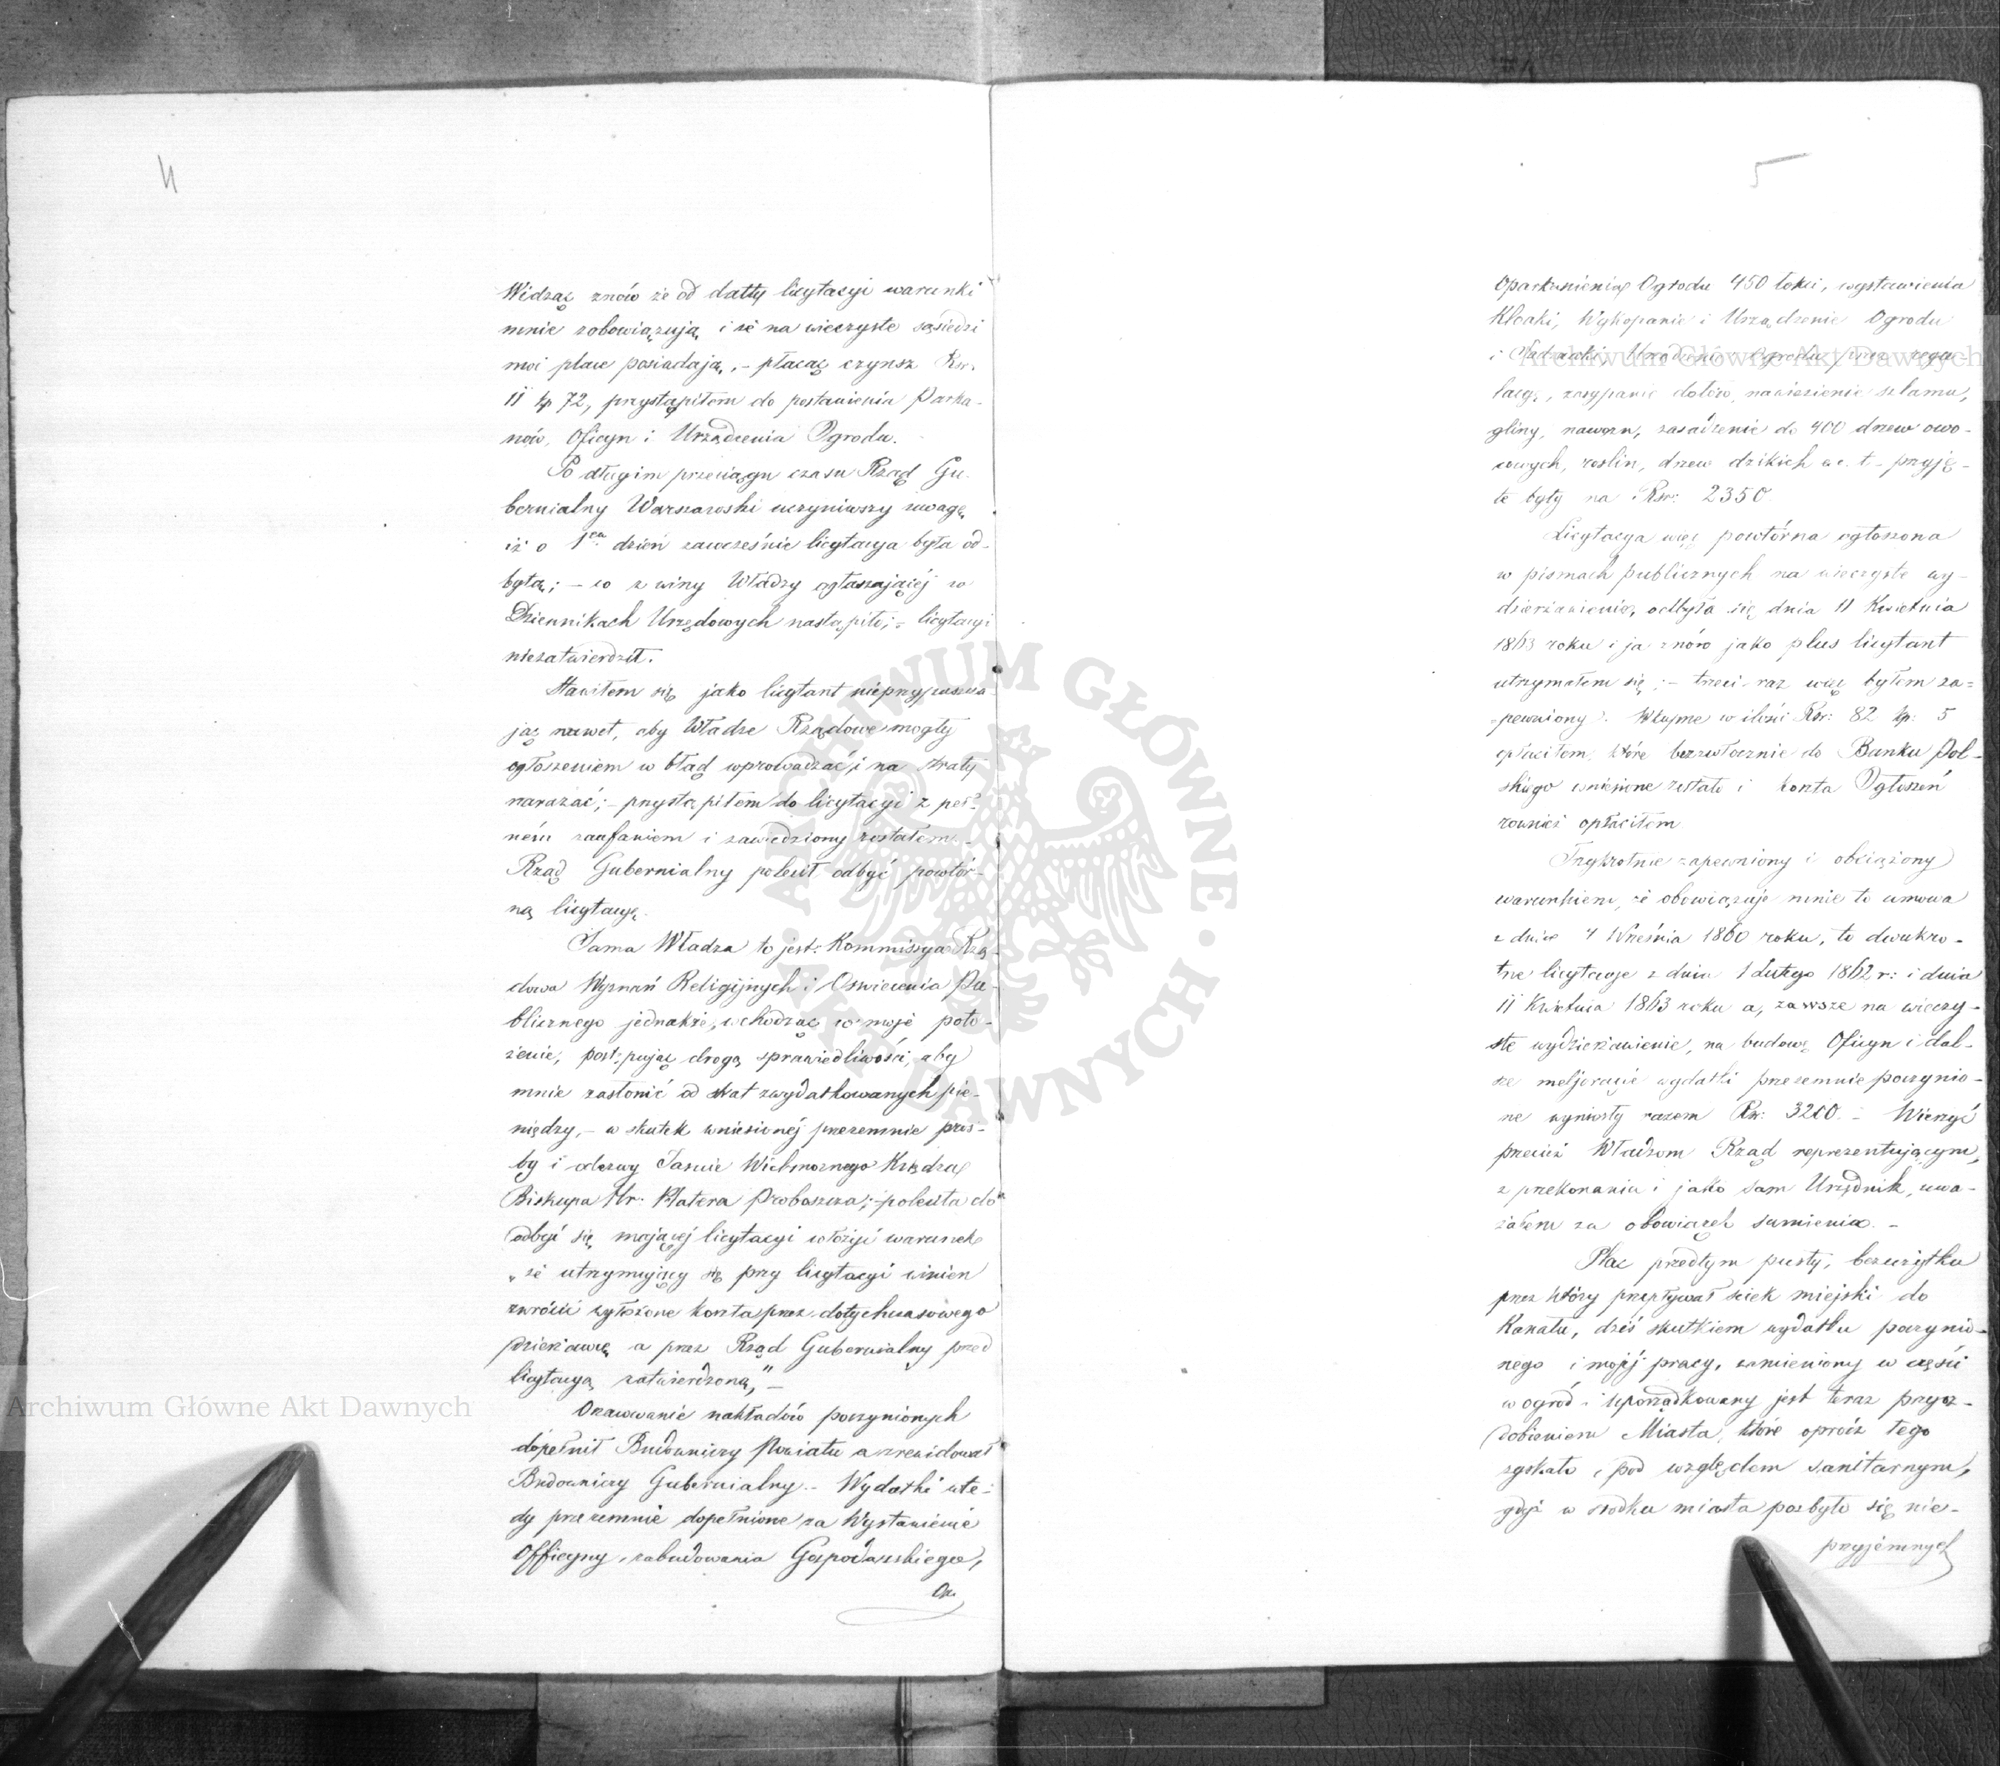 4
Widząc znów że od datty licytacyi warunki
mnie zobowiązują, i że na wieczyste sąsiedzi
moi place posiadają, – płacąc czynsz Rsr.
11 kp 72, przystąpiłem do postawienia Parka-
nów, Oficyn i Urządzenia Ogrodu.
Po długim przeciągu czasu Rząd Gu-
bernialny Warszawski uczyniwszy uwagę,
iż o 1en dzień zawcześnie licytacya była od-
bytą; – co z winy Władzy ogłaszającéj w
Dziennikach Urzędowych nastąpiło; – licytacyi
niezatwierdził.
Stawiłem się jako licytant nieprzypuszcza-
jąc nawet, aby Władze Rządowe mogły
ogłoszeniem w błąd wprowadzać, i na straty
narażać; – przystąpiłem do licytacyi z peł-
ném zaufaniem i zawiedziony zostałem. –
Rząd Gubernialny polecił odbyć powtór-
ną licytacyę.
Sama Władza to jest: Kommissya Rzą-
dowa Wyznań Religijnych i Oświecenia Pu-
blicznego jednakże, wchodząc w moje poło-
żenie, postępując drogą sprawiedliwości, aby
mnie zasłonić od strat zwydatkowanych pie-
niędzy, – w skutek wniesionéj przezemnie proś-
by i odezwy Jaśnie Wielmożnego Księdza
Biskupa Hr: Platera Proboszcza; – poleciła do
odbyć się mającéj licytacyi włożyć warunek
„że utrzymujący się przy licytacyi winien
zwrócić wyłożone koszta przez dotychczasowego
dzierżawcę a przez Rząd Gubernialny przed
licytacyą zatwierdzoną," –
Oszacowanie nakładów poczynionych
dopełnił Budowniczy Powiatu a zrewidował
Budowniczy Gubernialny. – Wydatki wte-
dy przezemnie dopełnione za Wystawienie
Officyny, zabudowania Gospodarskiego,
Op.
5
Oparkanienia Ogrodu 450 łokci, wystawienia
Kloaki, Wykopanie i Urządzenie Ogrodu
i Sadzawki, Urządzenie Ogrodu przez regu-
lacyę, zasypanie dołów, nawiezienie szlamu,
gliny, nawozu, zasadzenie do 400 drzew owo-
cowych, roślin, drzew dzikich &c. t – przyję-
te były na Rsr: 2350
Licytacya więc powtórna ogłoszona
w pismach publicznych na wieczyste wy-
dzierżawienie, odbyła się dnia 11 Kwietnia
1863 roku i ja znów jako plus licytant
utrzymałem się; – trzeci raz więc byłem za-
pewniony. Wkupne w ilości Rsr: 82 kp: 5
opłaciłem, które bezzwłocznie do Banku Pol-
skiego wniesione zostało i koszta Ogłoszeń
również opłaciłem
Trzykrotnie zapewniony i obciążony
warunkiem, że obowiązuje mnie to umowa
z dnia 4 Września 1860 roku, to dwukro-
tne licytacye z dnia 1 Lutego 1862 r: i dnia
11 Kwietnia 1863 roku a, zawsze na wieczy-
ste wydzierżawienie, na budowę Oficyn i dal-
sze melioracye wydatki przezemnie poczynio-
ne wyniosły razem Rsr: 3200. – Wierzyć
przecież Władzom Rząd reprezentującym,
z przekonania i jako sam Urzędnik, uwa-
żałem za obowiązek sumienia. –
Plac przedtym pusty, bezużytku
przez który przepływał ściek miejski do
Kanału, dziś skutkiem wydatku poczynio-
nego i mojéj pracy, zamieniony w części
w ogród i uporządkowany jest teraz przyoz-
dobieniem Miasta, które oprócz tego
zyskało i pod względem sanitarnym,
gdyż w środku miasta pozbyło się nie-
przyjemnych
Archiwum Główne Akt Dawnych
Archiwum Główne Akt Dawnych
ARCHIWUM GŁÓWNE AKT DAWNYCH